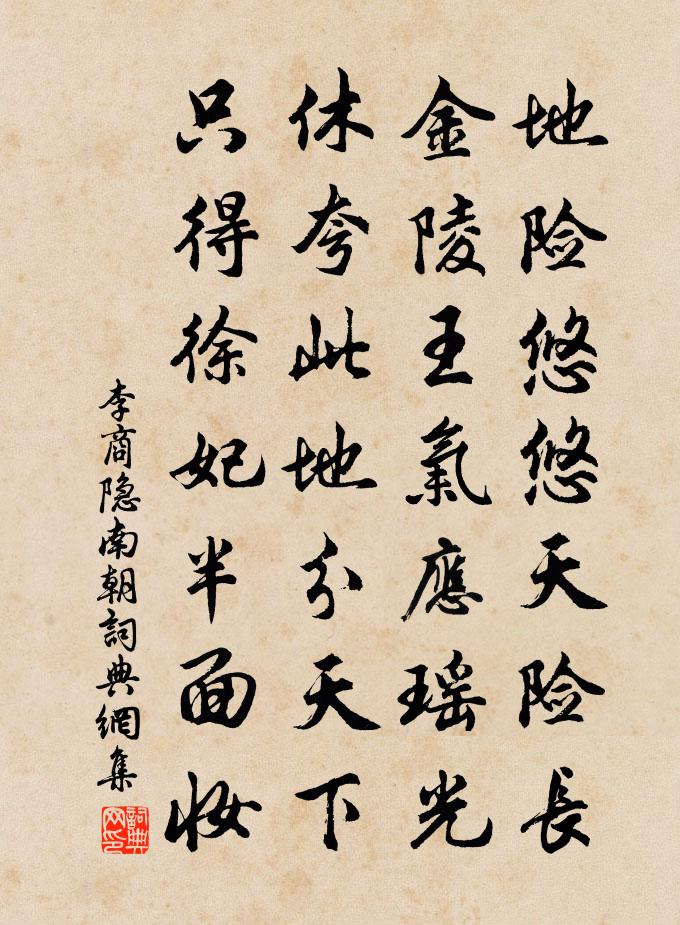 地险悠悠天险長
金陵王氣應瑶光
休夸此地分天下
只得徐妃半面妆
李商隐南朝詞典網集
詞典网印